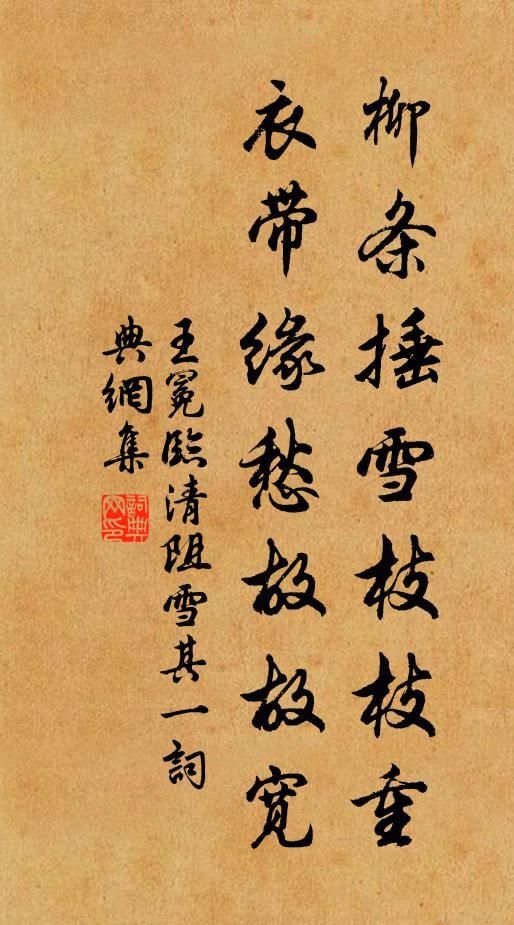 柳条捶雪枝枝重
衣带缘愁故故寛
王冕臨清阻雪其一詞
典網集
詞典網印